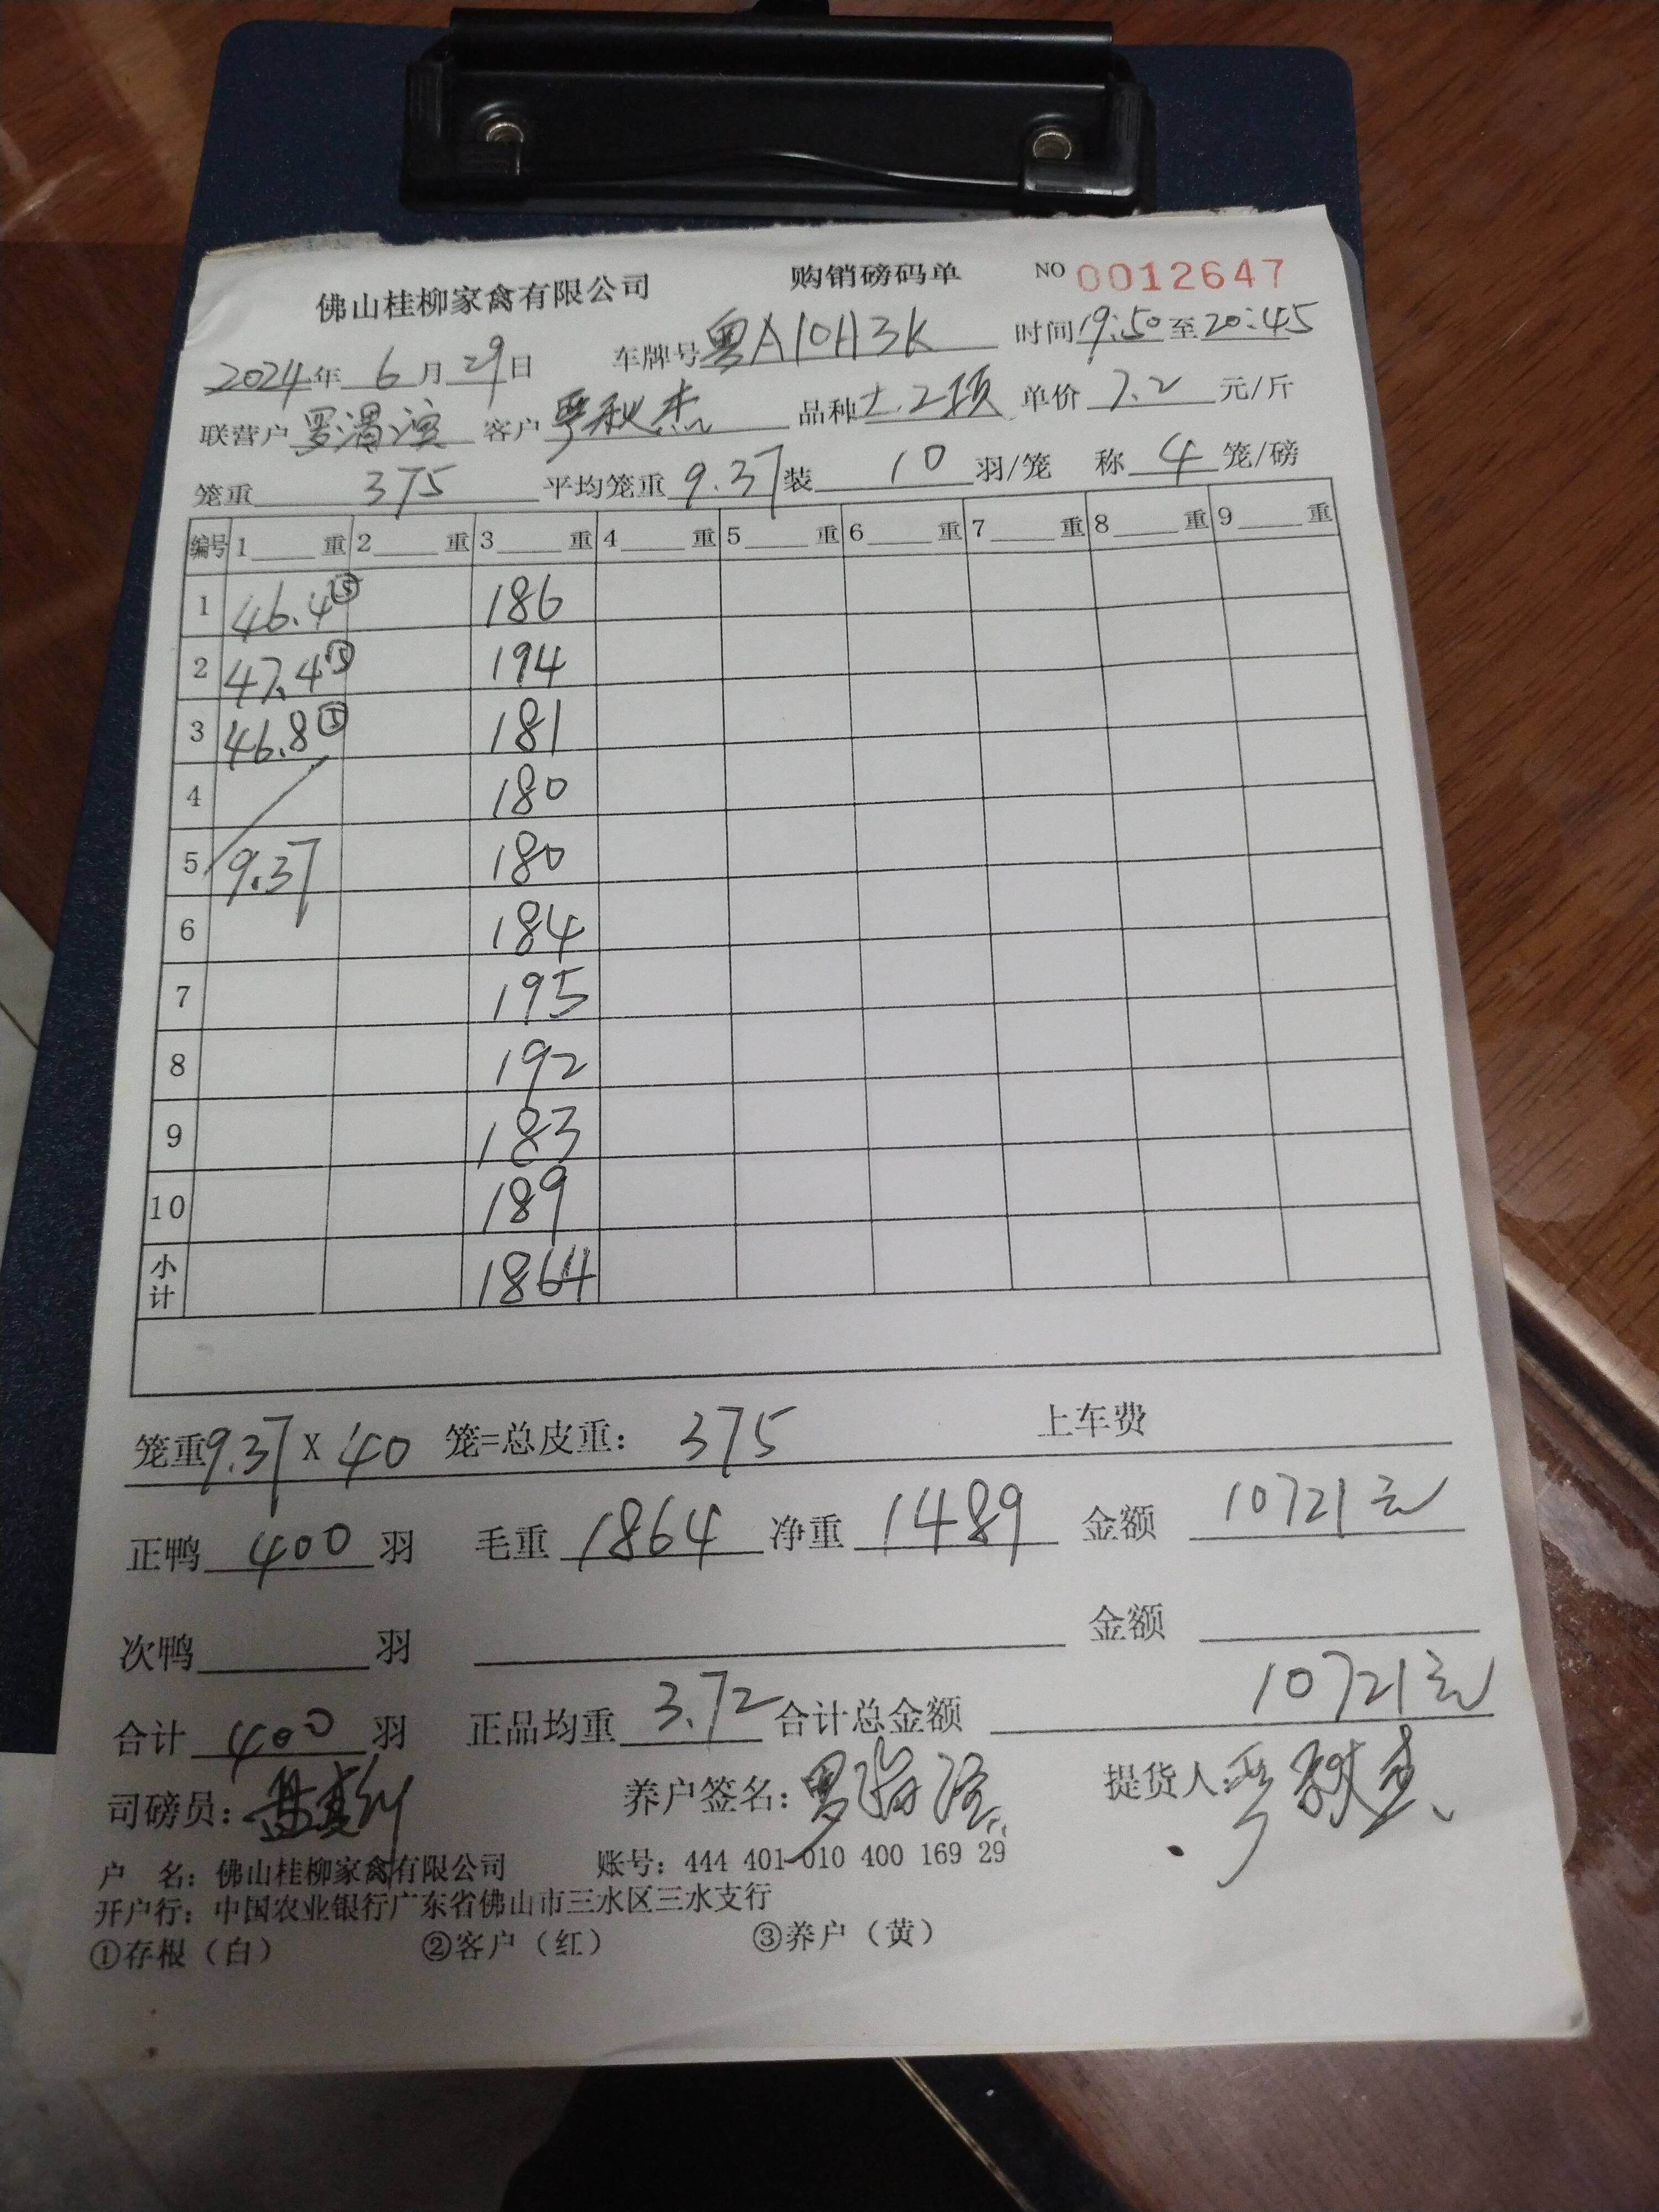 佛山桂柳家禽有限公司 购销磅码单 NO 0012647
2024年 6月 29日 车牌号 粤A10H3K 时间 19:50 至 20:45
联营户 罗 客户 严秋杰 品种 土2项 单价 7.2 元/斤
笼重 375 平均笼重 9.37 装 10 羽/笼 称 4 笼/磅
编号 1 重 2 重 3 重 4 重 5 重 6 重 7 重 8 重 9 重
1 46.4⑤ 186
2 47.4⑤ 194
3 46.8⑤ 181
4 180
5 9.37 180
6 184
7 195
8 192
9 183
10 189
小计 1864
笼重 9.37 X 40 笼=总皮重: 375 上车费
正鸭 400 羽 毛重 1864 净重 1489 金额 10721元
次鸭 羽 金额
合计 400 羽 正品均重 3.72 合计总金额 10721元
司磅员: 养户签名: 罗 提货人: 严秋杰
户 名: 佛山桂柳家禽有限公司 账号: 444 401 010 400 169 29
开户行: 中国农业银行广东省佛山市三水区三水支行
①存根(白) ②客户(红) ③养户(黄)